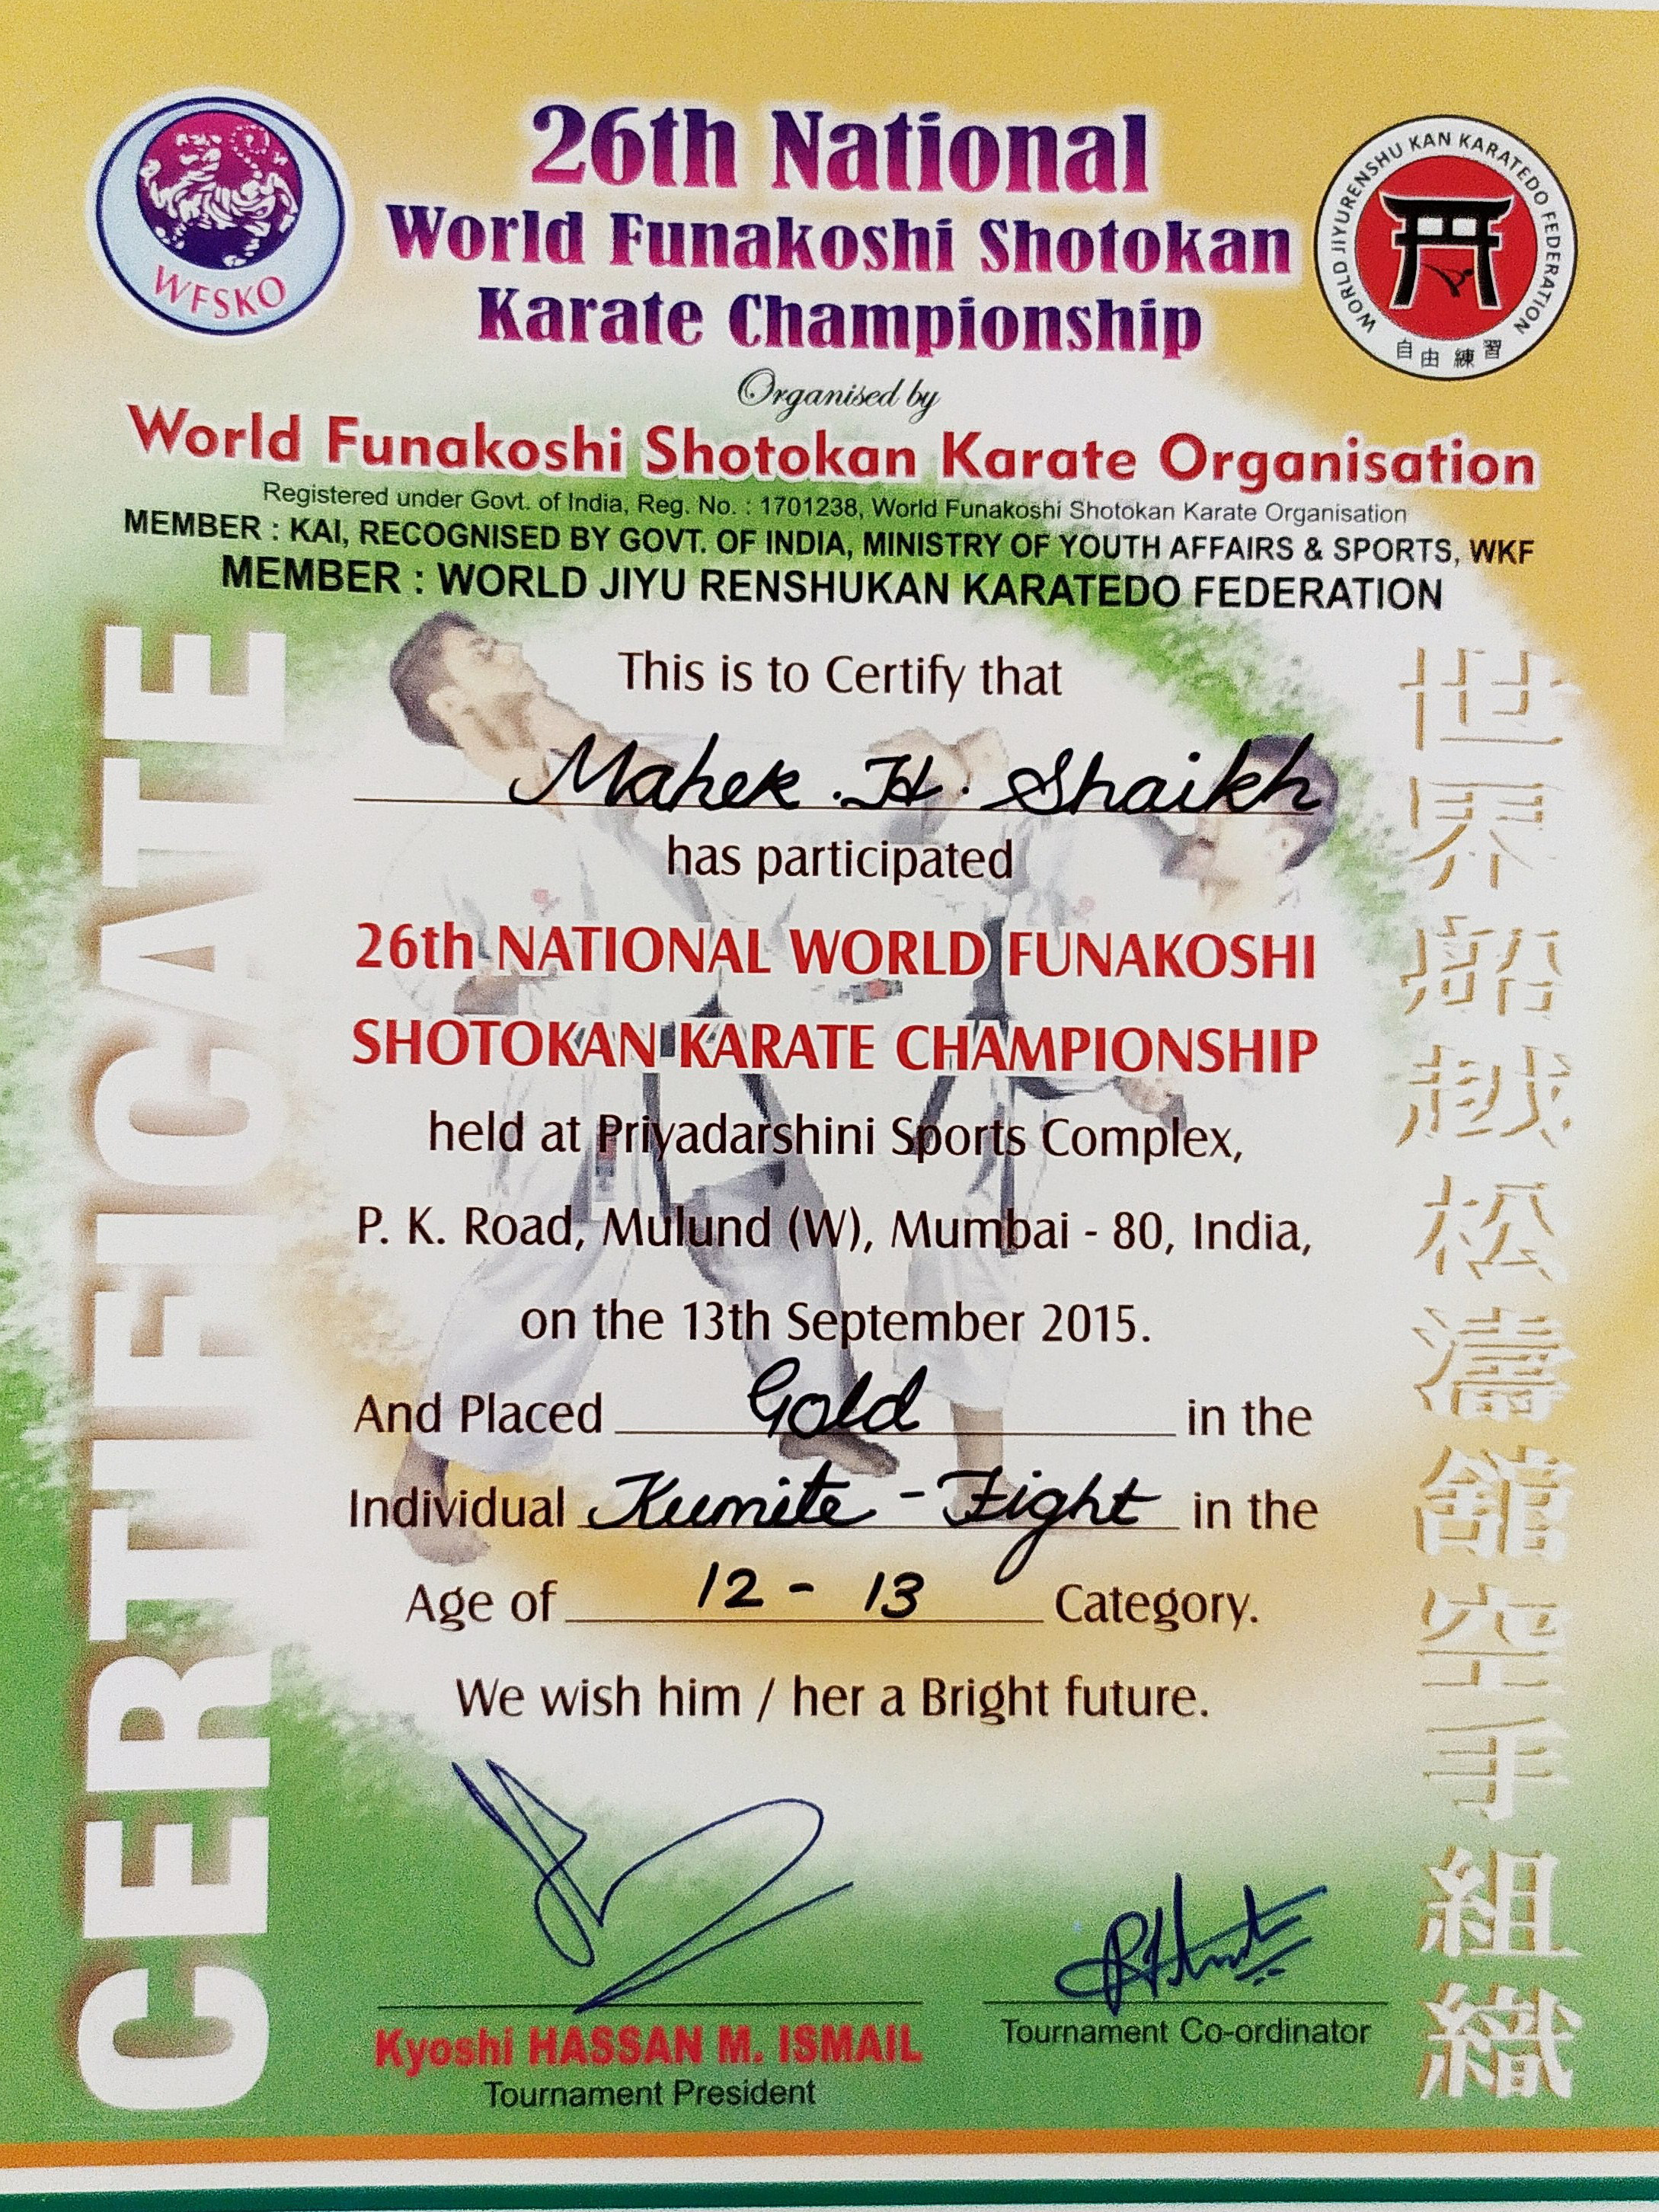 26th National
World Funakoshi Shotokan
Karate Championship
WFSKO
WORLD JIYURENSHU KAN KARATEDO FEDERATION
自由練習
Organised by
World Funakoshi Shotokan Karate Organisation
Registered under Govt. of India, Reg. No. : 1701238, World Funakoshi Shotokan Karate Organisation
MEMBER : KAI, RECOGNISED BY GOVT. OF INDIA, MINISTRY OF YOUTH AFFAIRS & SPORTS, WKF
MEMBER : WORLD JIYU RENSHUKAN KARATEDO FEDERATION
CERTIFICATE
This is to Certify that
Mahek . H . Shaikh
has participated
26th NATIONAL WORLD FUNAKOSHI
SHOTOKAN KARATE CHAMPIONSHIP
held at Priyadarshini Sports Complex,
P. K. Road, Mulund (W), Mumbai - 80, India,
on the 13th September 2015.
And Placed Gold in the
Individual Kumite - Fight in the
Age of 12 - 13 Category.
We wish him / her a Bright future.
世界船越松濤館空手組織
Kyoshi HASSAN M. ISMAIL
Tournament President
Tournament Co-ordinator